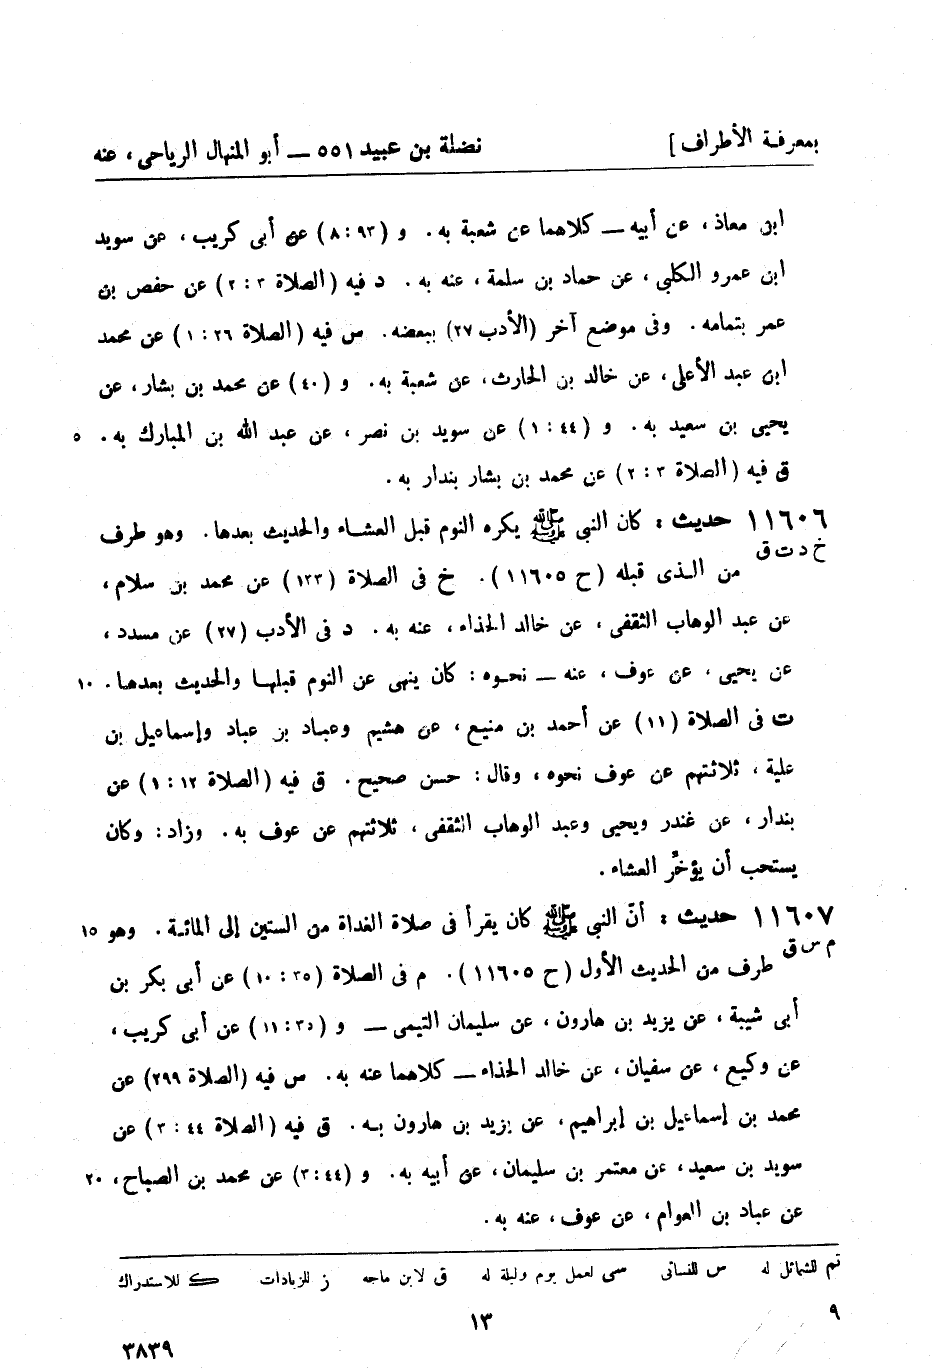 بمعرفة الأطراف ] نضلة بن عبيد ٥٥١ — أبو المنهال الرياحى ، عنه
ابن معاذ ، عن أبيه — كلاهما عن شعبة به . و ( ٩٣ : ٨ ) عن أبى كريب ، عن سويد
ابن عمرو الكلبى ، عن حماد بن سلمة ، عنه به . د فيه ( الصلاة ٣ : ٢ ) عن حفص بن
عمر بتمامه . وفى موضع آخر ( الأدب ٢٧ ) ببعضه . س فيه ( الصلاة ٢٦ : ١ ) عن محمد
ابن عبد الأعلى ، عن خالد بن الحارث ، عن شعبة به . و ( ٤٠ ) عن محمد بن بشار ، عن
يحيى بن سعيد به . و ( ٤٤ : ١ ) عن سويد بن نصر ، عن عبد الله بن المبارك به . ٥
ق فيه ( الصلاة ٣ : ٢ ) عن محمد بن بشار بندار به .
١١٦٠٦ حديث : كان النبى ﷺ يكره النوم قبل العشاء والحديث بعدها . وهو طرف
خ د ت ق من الذى قبله ( ح ١١٦٠٥ ) . خ فى الصلاة ( ١٣٣ ) عن محمد بن سلام ،
عن عبد الوهاب الثقفى ، عن خالد الحذاء ، عنه به . د فى الأدب ( ٢٧ ) عن مسدد ،
عن يحيى ، عن عوف ، عنه — نحوه : كان ينهى عن النوم قبلها والحديث بعدها . ١٠
ت فى الصلاة ( ١١ ) عن أحمد بن منيع ، عن هشيم وعباد بن عباد وإسماعيل بن
علية ، ثلاثتهم عن عوف نحوه ، وقال : حسن صحيح . ق فيه ( الصلاة ١٢ : ١ ) عن
بندار ، عن غندر ويحيى وعبد الوهاب الثقفى ، ثلاثتهم عن عوف به . وزاد : وكان
يستحب أن يؤخِّر العشاء .
١١٦٠٧ حديث : أنّ النبى ﷺ كان يقرأ فى صلاة الغداة من الستين إلى المائة . وهو ١٥
م س ق طرف من الحديث الأول ( ح ١١٦٠٥ ) . م فى الصلاة ( ٣٥ : ١٠ ) عن أبى بكر بن
أبى شيبة ، عن يزيد بن هارون ، عن سليمان التيمى — و ( ٣٥ : ١١ ) عن أبى كريب ،
عن وكيع ، عن سفيان ، عن خالد الحذاء — كلاهما عنه به . س فيه ( الصلاة ٢٩٩ ) عن
محمد بن إسماعيل بن إبراهيم ، عن يزيد بن هارون به . ق فيه ( الصلاة ٤٤ : ٣ ) عن
سويد بن سعيد ، عن معتمر بن سليمان ، عن أبيه به . و ( ٤٤ : ٣ ) عن محمد بن الصباح ، ٢٠
عن عباد بن العوام ، عن عوف ، عنه به .
تم للشمائل له س للنسائى سى لعمل يوم وليلة له ق لابن ماجه ز للزيادات ك للاستدراك
٩ ١٣
٣٨٣٩